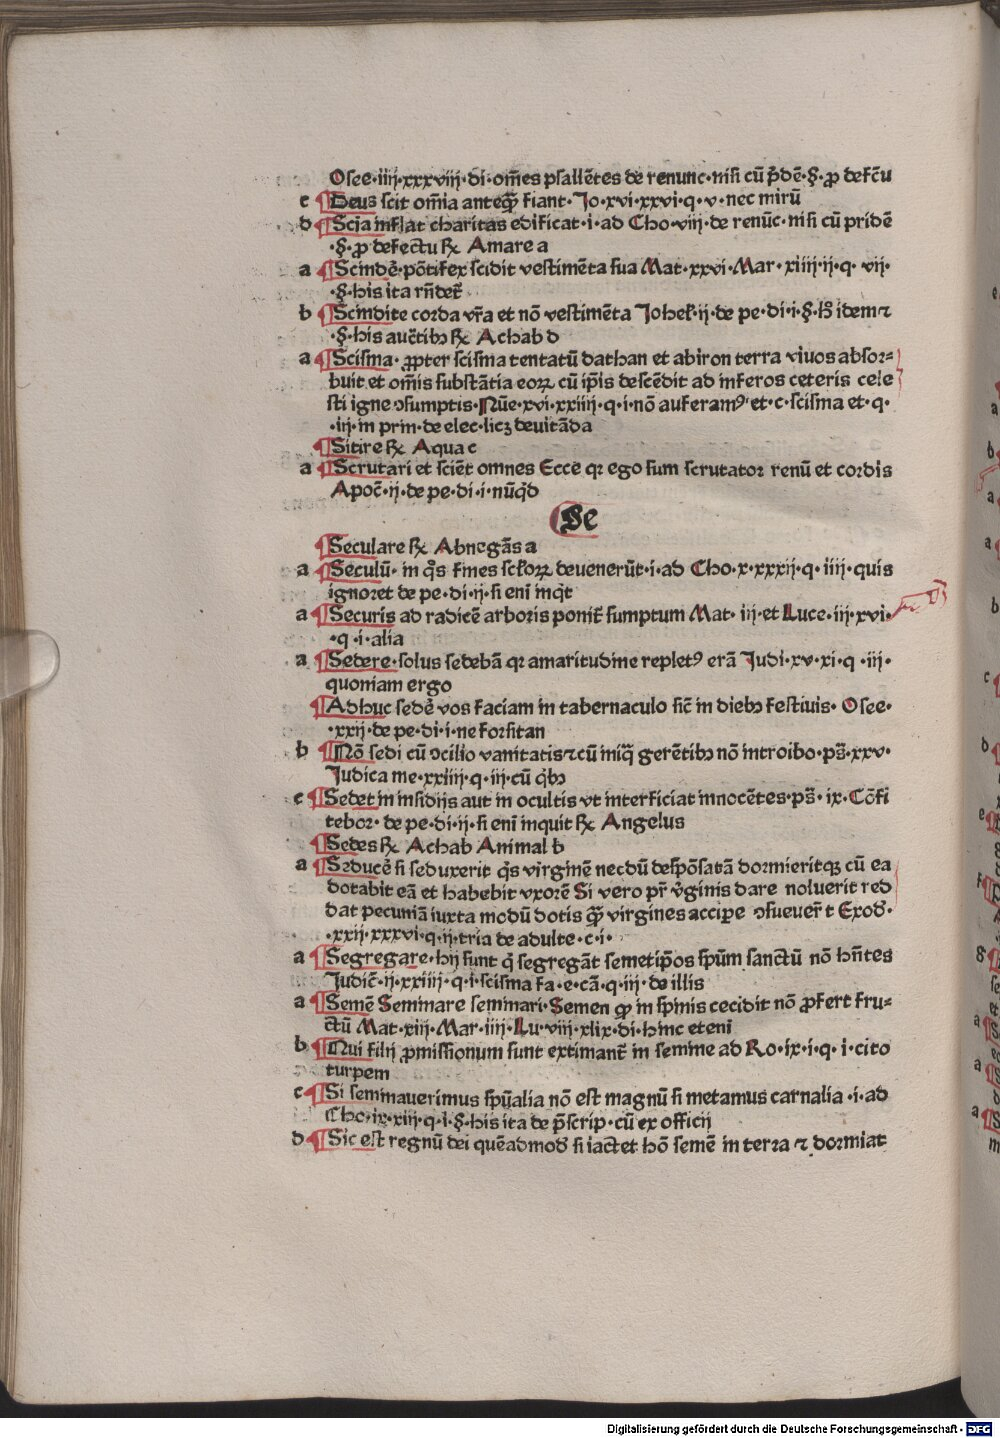 Osee·iiij·xxxviij·di·om̄es psallētes de renunc·nisi cū p̄dē·§·ꝓ defc̄u
c ¶Deus scit om̄ia anteqꝫ fiant·Jo·xvi·xxvi·q·v·nec mirū
d ¶Scia inflat charitas edificat·i·ad Cho·viij·de renūc·nisi cū pridē
·§·ꝓ defectu ℞ Amare a
a ¶Scindẽ·pōtifex scidit vestimēta sua Mat·xxvi·Mar·xiiij·ij·q· vij·
·§·his ita rn̄det̄
b ¶Scindite corda vr̄a et nō vestimēta Johel·ij·de pe·di·i·§·h̊ idem ⁊
·§·his auc̄tibꝫ ℞ Achab d
a ¶Scisma·ꝓpter scisma tentatū dathan et abiron terra viuos absor⸗
buit et om̄is substātia eoꝝ cū ip̄is descēdit ad inferos ceteris cele
sti igne ↄsumptis·Nūe·xvi·xxiiij·q·i·nō auferamꝰ et·c·scisma et·q·
·iij·in prin·de elec·licꝫ deuitāda
¶Sitire ℞ Aqua c
a ¶Scrutari et sciēt omnes Ecce qꝛ ego sum scrutator renū et cordis
Apoc̄·ij·de pe·di·i·nūq̇d
Se
¶Seculare ℞ Abnegās a
a ¶Seculū·in q̊s fines sc̄loꝝ deuenerūt·i·ad Cho·x·xxxij·q·iiij·quis
ignoret de pe·di·ij·si eni inq̇t
a ¶Securis ad radicē arboris ponit̄ sumptum Mat·iij·et Luce·iij·xvi·
·q·i·alia
a ¶Sedere·solus sedebā qꝛ amaritudine repletꝰ erā Judi·xv·xi·q·iij·
quoniam ergo
¶Adhuc sedẽ vos faciam in tabernaculo sic̄ in diebꝫ festiuis·Osee·
·xxij·de pe·di·i·ne forsitan
b ¶Nō sedi cū ↄcilio vanitatis ⁊ cū iniq̃ gerētibꝫ nō introibo·ps̄·xxv·
Judica me·xxiiij·q·iij·cū q̇bꝫ
c ¶Sedet in insidijs aut in ocultis vt interficiat innocētes·ps̄·ix·Cōfi
tebor·de pe·di·ij·si eni inquit ℞ Angelus
¶Sedes ℞ Achab Animal b
a ¶Seducẽ si seduxerit q̇s virginē necdū despōsatā dormieritqꝫ cū ea
dotabit eā et habebit vxorē Si vero pr̄ v̇ginis dare noluerit red
dat pecuniā iuxta modū dotis qꝫ virgines accipe ↄsueuer̄t Exod·
·xxij·xxxvi·q·ij·tria de adulte·c·i·
a ¶Segregare·hij sunt q̇ segregāt semetip̄os sp̄um sanctū nō hn̄tes
Judic̄·ij·xxiiij·q·i·scisma fa·e·cā·q·iij·de illis
a ¶Semē Seminare seminari·Semen qꝫ in sp̄inis cecidit nō ꝓfert fru⸗
ctū Mat·xiij·Mar·iiij·Lu·viij·xlix·di·hinc eteni
b ¶Nui filij ꝓmissionum sunt extimant̄ in semine ad Ro·ix·i·q·i·cito
turpem
c ¶Si seminauerimus sp̄ualia nō est magnū si metamus carnalia·i·ad
Cho·ix·xiij·q·i·§·his ita de p̄scrip·cū ex officij
d ¶Sic est regnū dei quēadmod̄ si iactet hō semē in terra ⁊ dormiat
Digitalisierung gefördert durch die Deutsche Forschungsgemeinschaft - DFG